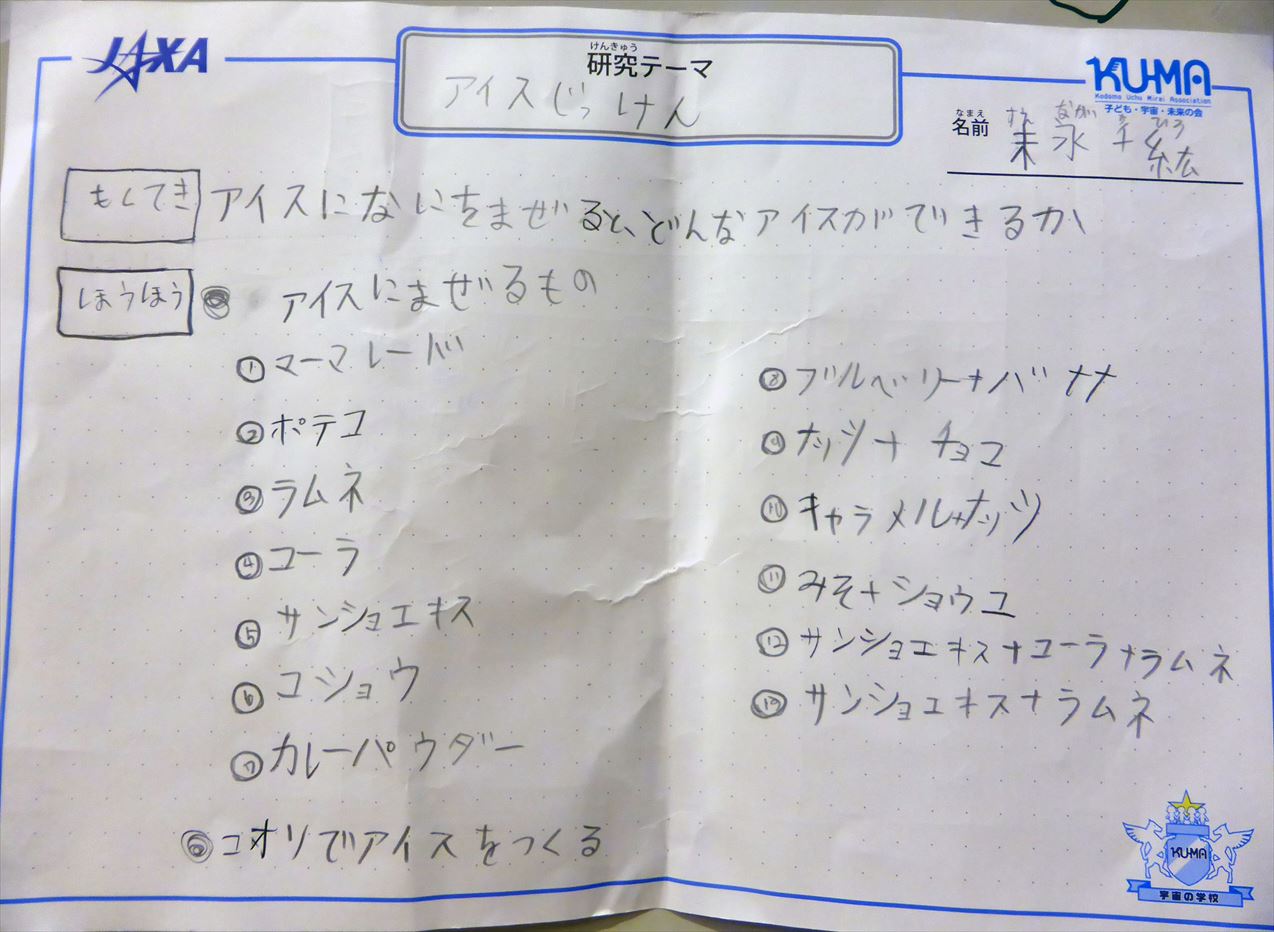 JAXA
けんきゅう
研究テーマ
アイスじっけん
KU-MA
Kodomo Uchu Mirai Association
子ども・宇宙・未来の会
なまえ
名前
すえ なが ち ひろ
末永千紘
もくてき アイスになにをまぜると、どんなアイスができるか
ほうほう アイスにまぜるもの
① マーマレード
② ポテコ
③ ラムネ
④ コーラ
⑤ サンショエキス
⑥ コショウ
⑦ カレーパウダー
⑧ ブルベリー+バナナ
⑨ ナッツ+チョコ
⑩ キャラメル+ナッツ
⑪ みそ+ショウユ
⑫ サンショエキス+コーラ+ラムネ
⑬ サンショエキス+ラムネ
コオリでアイスをつくる
KU-MA
宇宙の学校